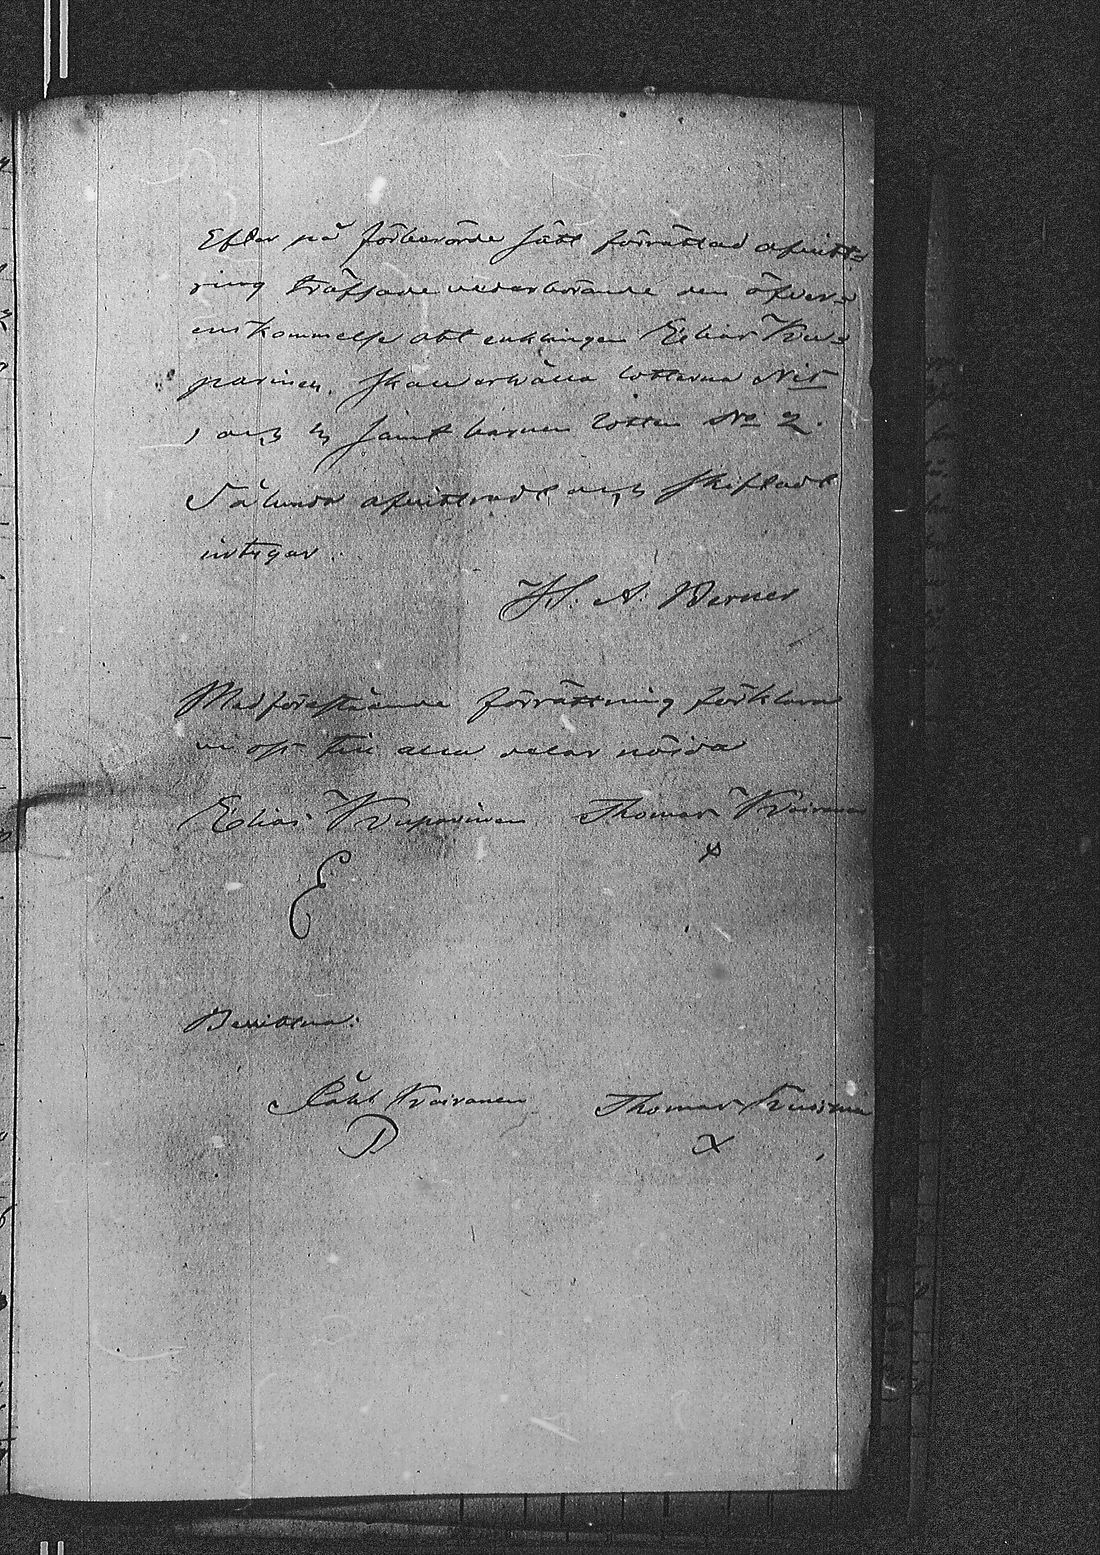 Efter på förberörde sätt förrättad afvitt=
ring träffade vederbörande den öfver=
enskommelse att enklingen Elias Kru=
parinen skall erhålla lotterna N:is
1 och 3 samt barnen lotten No 2.
Sålunda afvittradt och skiftadt
intygar.
H. A. Werner
Med förestående förrättning förklara
vi oss till alla delar nöjda
Elias Kruparinen Thomas
E x
Bevittna:
Thomas
P x